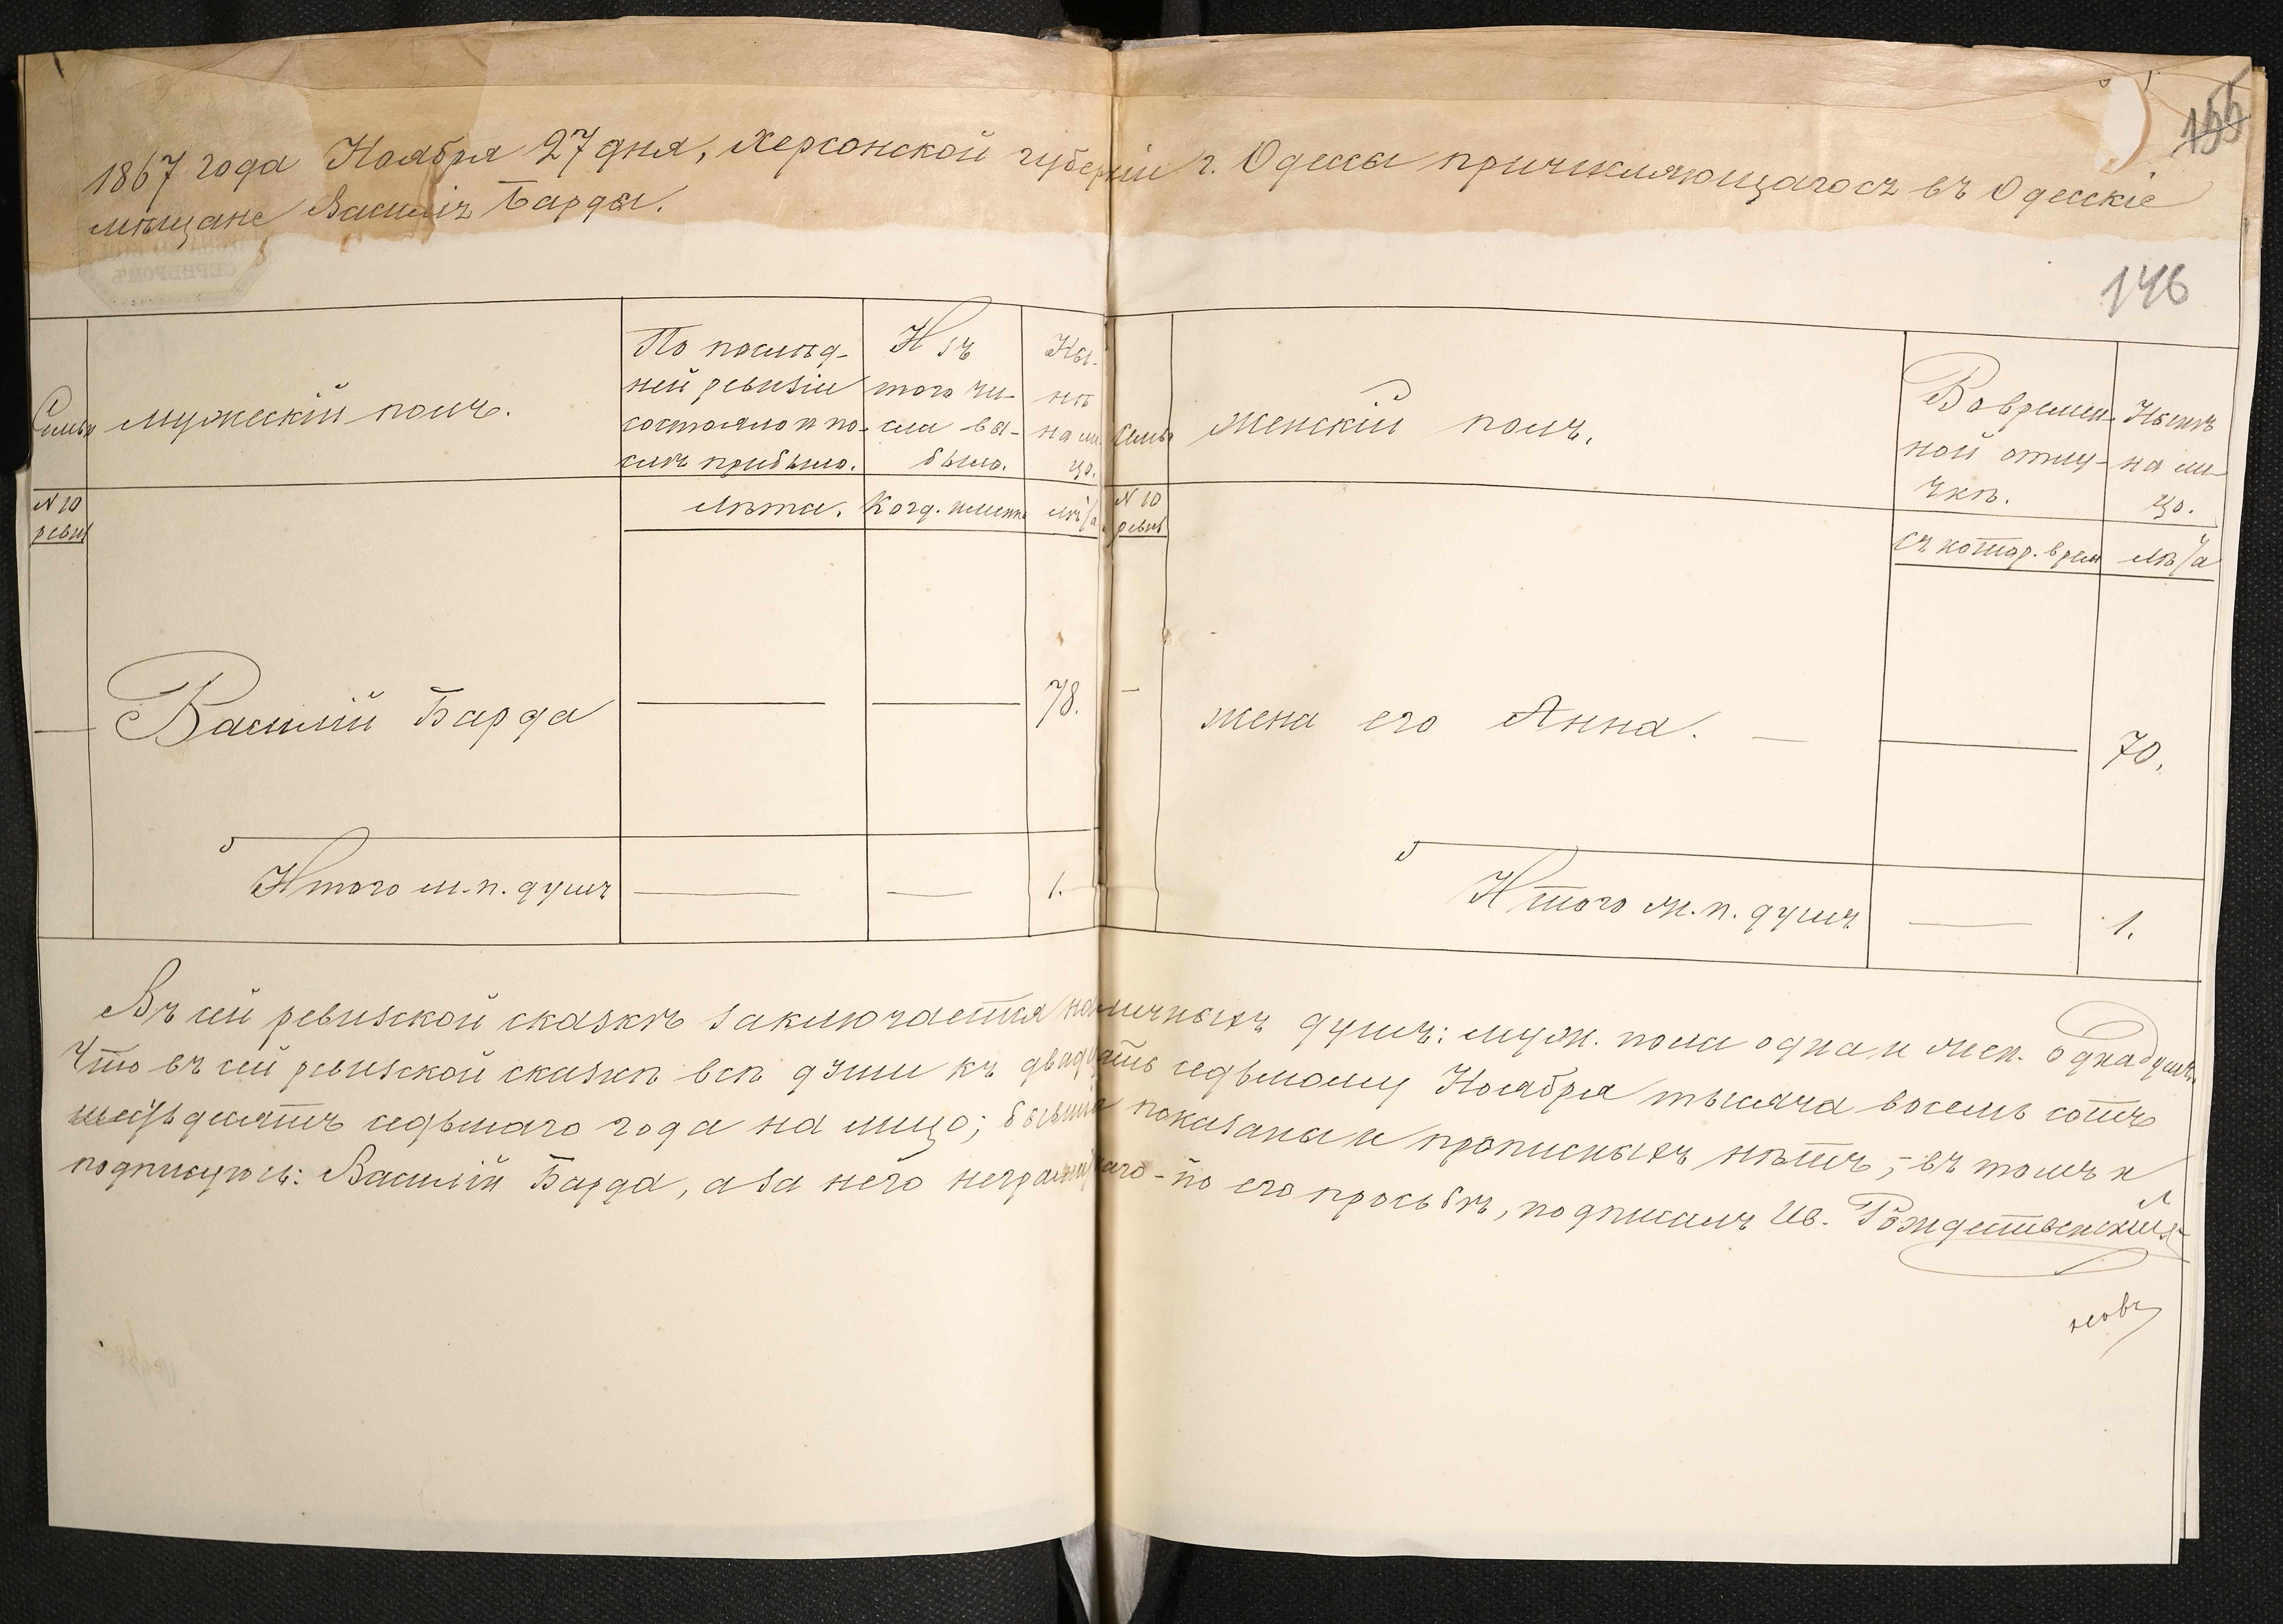 155
1867 года Ноября 27 дня, Херсонской губерніи г. Одессы причисляющагося въ Одесскіе
мѣщане Василія Барды.
146
Семьи
мужескій полъ.
По послѣд-
ней ревизіи
состояло и по-
слѣ прибыло.
Изъ
того чи-
сла вы-
было.
Ны-
нѣ
на ли-
цо.
№ 10
ревиз
Лѣта.
Когд. именно
Лѣта
Семьи
женскій полъ.
Во времен-
ной отлу-
чкѣ.
Нынѣ
на ли-
цо.
№ 10
ревиз
Съ котор. врем
Лѣта
Василій Барда
78.
жена его Анна.
70.
Итого м.п. душъ
1.
Итого ж.п. душъ
1.
Въ сей ревизской сказкѣ заключается наличныхъ душъ: муж. пола одна и жен. одна душъ.
Что въ сей ревизской сказкѣ всѣ души къ двадцать седьмому Ноября тысяча восемь сотъ
шестьдесятъ седьмаго года на лицо; показаны и прописныхъ нѣтъ, - въ томъ и
подписуюсь: Василій Барда, а за него неграмотнаго - по его просьбѣ, подписалъ Ив. Рождественскій